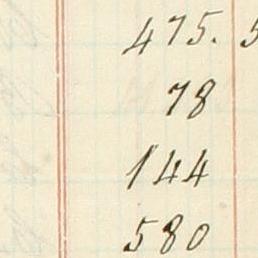 475. 5
78
144
580